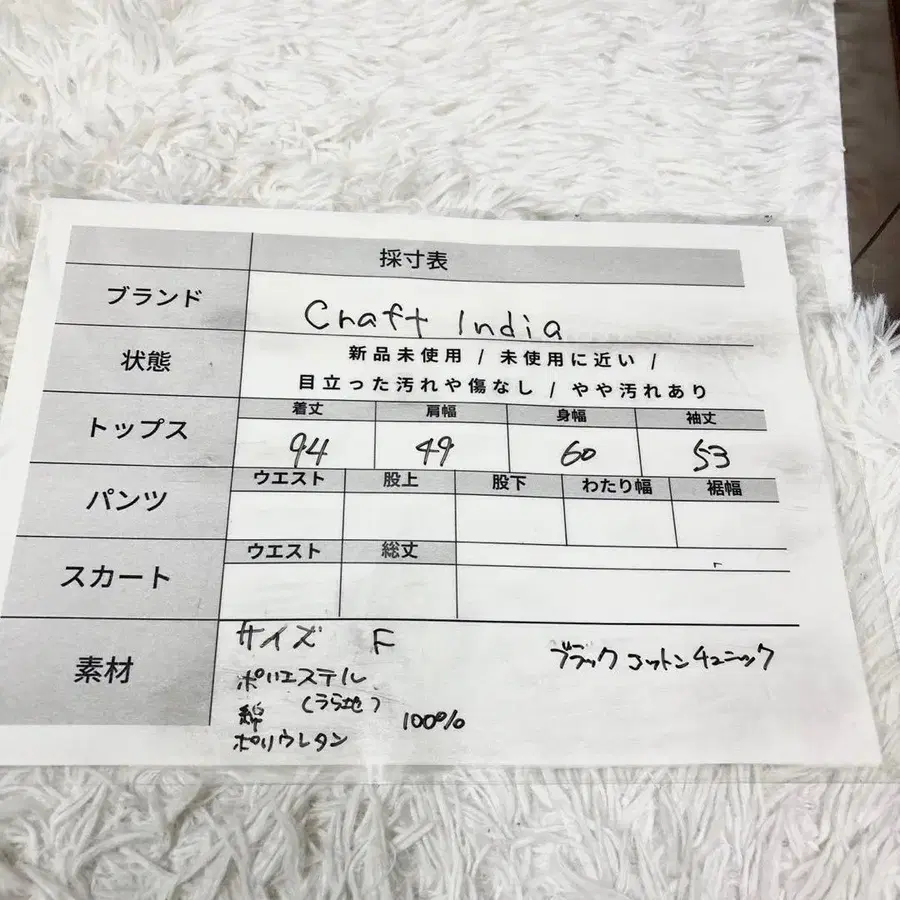 採寸表
ブランド Craft India
状態 新品未使用 / 未使用に近い /
目立った汚れや傷なし / やや汚れあり
トップス 着丈 肩幅 身幅 袖丈
94 49 60 53
パンツ ウエスト 股上 股下 わたり幅 裾幅
スカート ウエスト 総丈
素材 サイズ F
ブラック コットンチュニック
ポリエステル
(うら地)
綿 100%
ポリウレタン